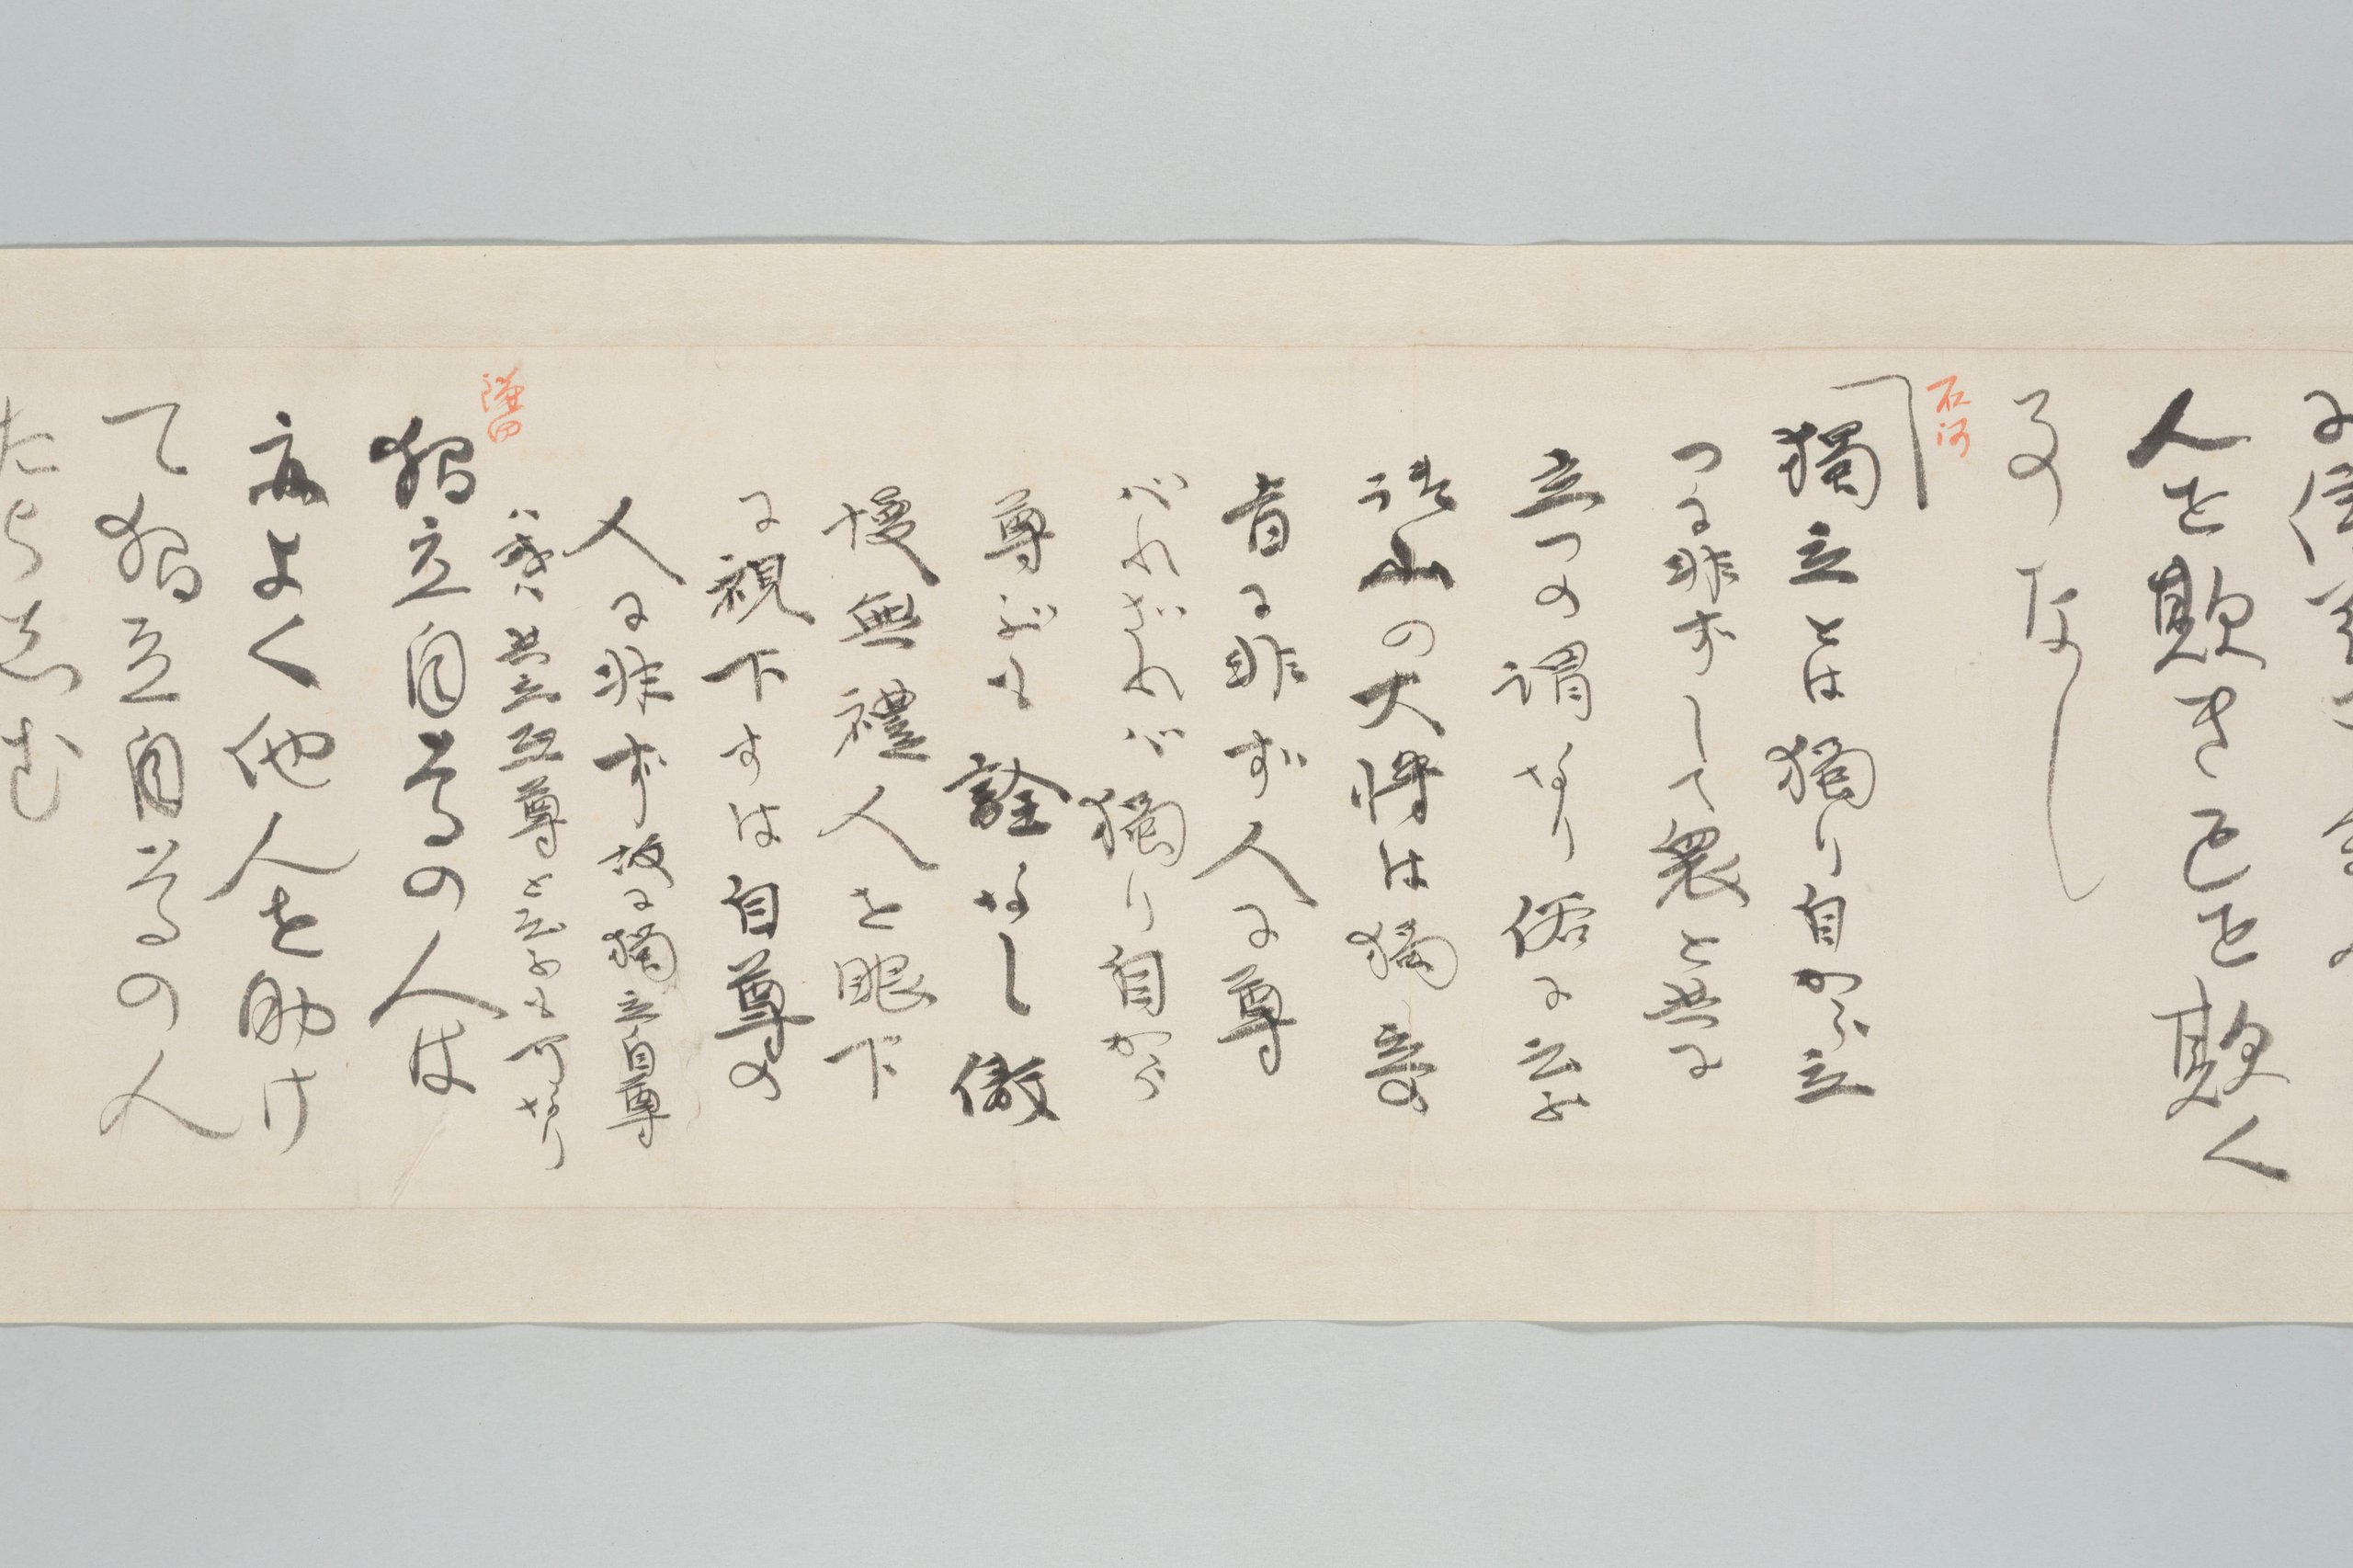 人を欺き己を欺く
事なし
石河
獨立とは獨り自から立
つに非ずして衆と共に
立つの謂なり俗に云ふ
山の大将は獨
に非ず人に尊
ばれざれば獨り自から
尊ぶも詮なし傲
慢無禮人を眼下
に視下すは自尊の
人に非ず故に獨立自尊
共立互尊と云ふも可なり
鎌田
獨立自尊の人は
亦よく他人を助け
て獨立自尊の人
たらしむ